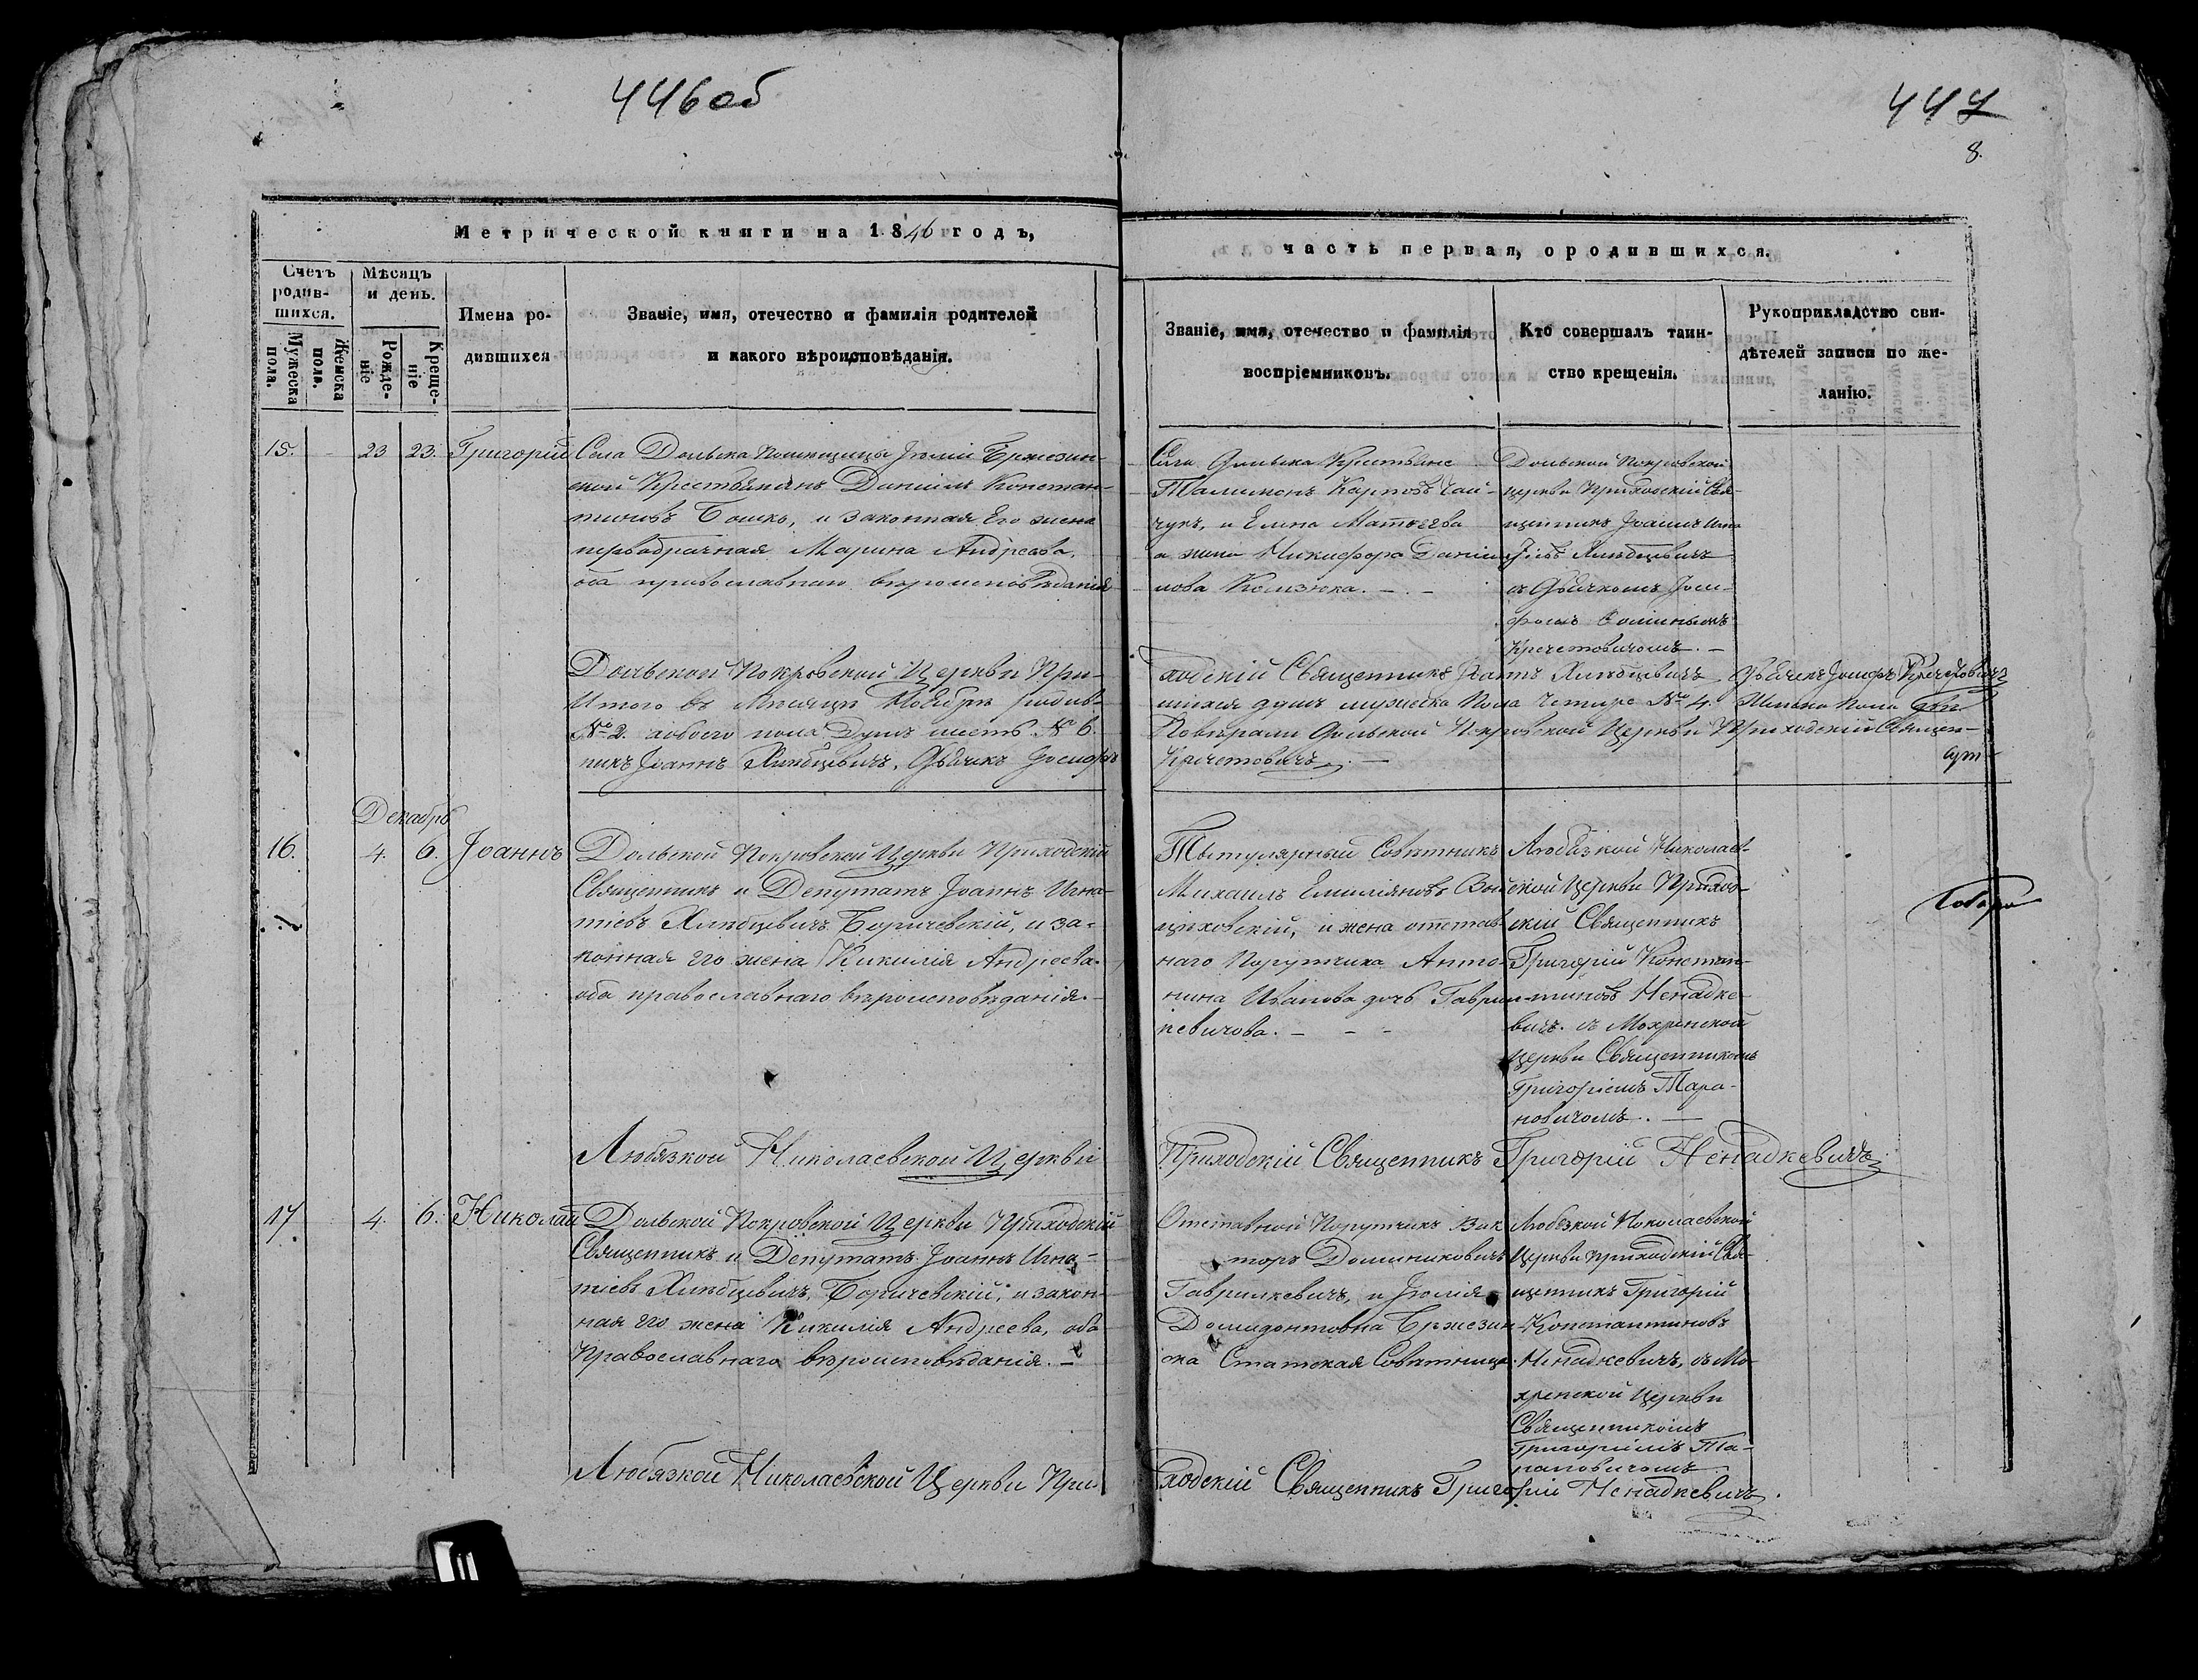 446об
447
8.
Метрической книги на 1846 годъ,
Счетъ родив-шихся.
Мужеска пола.
Женска пола.
Мѣсяцъ и день.
Рожде-ніе
Креще-ніе
Имена ро-
дившихся
Званіе, имя, отечество и фамилія родителей
и какого вѣроисповѣданія.
часть первая, о родившихся.
Званіе, имя, отечество и фамилія
воспріемниковъ.
Кто совершалъ таин-
ство крещенія.
Рукоприкладство сви-
дѣтелей записи по же-
ланію.
15. 23 23. Григорій
Села Дольска Помещицы Юлiи Бржезин-
ской Крестьянинъ Даніилъ Констан-
тиновъ Бошко, и законная Его жена
первобрачная Марина Андреева,
оба православнаго вѣроисповѣданія
Села Дольска Крестьяне
Карповъ
чукъ, и Елена Матвеева
а жена Никифора Даніи-
лова Комзюка.
Дольской Покровской
Церкви Приходскій Свя-
щенникъ Іоаннъ Игна
тіевъ Хлѣбцевичъ
съ Дьячкомъ Іоси-
фомъ
Кречетовичомъ. –
Дольской Покровской Церкви При-
ходскій Священникъ Іоаннъ Хлѣбцевичъ Дьячекъ Іосифъ Кречетовичъ
Итого въ Мѣсяцѣ Ноябрѣ родив-
шихся душъ мужеска Пола Четыре № 4. Женска Пола двѣ
№ 2. а обоего пола Душъ шесть № 6.
Повѣряли Дольской Покровской Церкви Приходскій Священ-
никъ Іоаннъ Хлѣбцевичъ, Дьячекъ Іосифъ
Кречетовичъ
Декабрь
16. 4. 6. Іоаннъ
Дольской Покровской Церкви Приходскій
Священникъ и Депутатъ Іоаннъ Игна-
тіевъ Хлѣбцевичъ Боричевскій, и за-
конная его жена Кикилія Андреева.
оба православнаго вѣроисповѣданія. –
Тытулярный Совѣтникъ
Михаилъ Емиліяновъ Вой-
цѣховскій, и жена отстав-
наго Порутчика Анто-
нина Иванова дочь Гаврил-
кевичова. – – –
Любязкой Николаев-
ской Церкви Приход-
скій Священникъ
Григорій Констан-
тиновъ Ненадке-
вичъ. съ Мохренской
Церкви Священникомъ
Григоріемъ Тара-
новичомъ. –
Любязкой Николаевской Церкви
Приходскій Священникъ Григорій Ненадкевичъ
17 4. 6. Николай
Дольской Покровской Церкви Приходскій
Священникъ и Депутатъ Іоаннъ Игна-
тіевъ Хлѣбцевичъ, Боричевскій, и закон-
ная его жена Кикилія Андреева, оба
Православнаго вѣроисповѣданія. –
Отставной Порутчикъ Вик
торъ Доминиковичъ
Гаврилкевичъ, и Юлія
Домидонтовна Бржезин-
ска Статская Совѣтница.
Любязкой Николаевской
Церкви Приходскій Свя-
щенникъ Григорій
Константиновъ
Ненадкевичъ, съ Мо-
хренской Церкви
Священникомъ
Григоріемъ Та-
рановичомъ
Любязкой Николаевской Церкви При-
ходскій Священникъ Григорій Ненадкевичъ.